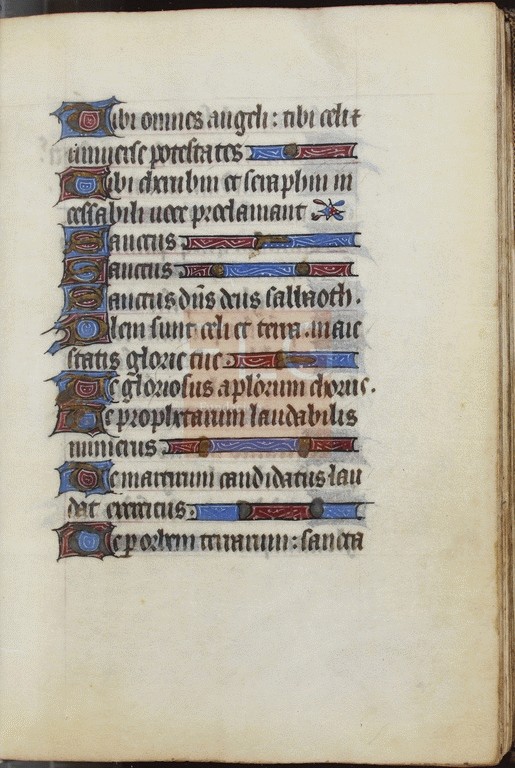 Tibi omnes angeli: tibi celi et
universe potestates
Tibi cherubin et seraphin in
cessabili uoce proclamant
Sanctus
Sanctus
Sanctus dn̄s deus sabaoth.
Pleni sunt celi et terra. maie
statis glorie tue.
Te gloriosus aplōrum chorus.
Te prophetarum laudabilis
numerus.
Te martirum candidatus lau
dat exercitus.
Te p orbem terrarum: sancta